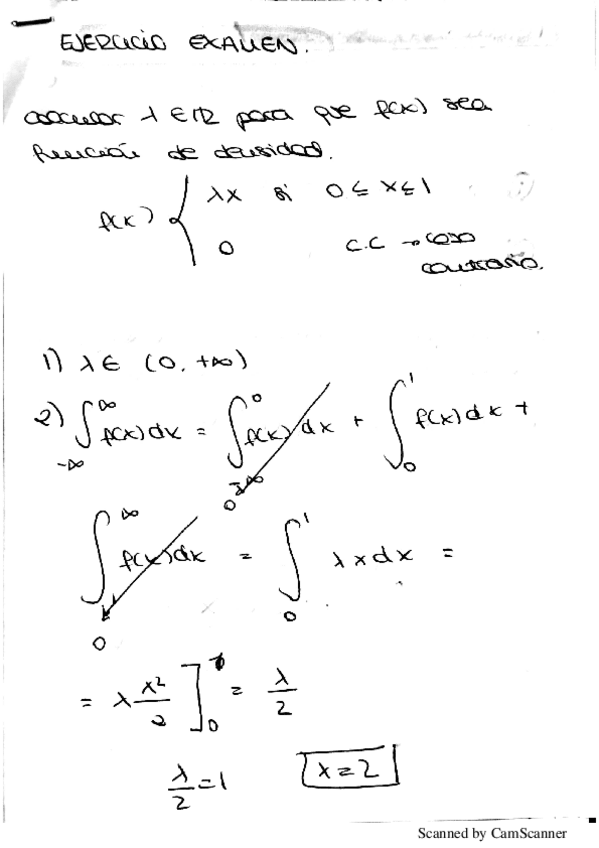 EJERCICIO EXAMEN.
calcular λ ∈ ℝ para que f(x) sea
función de densidad.
f(x) { λx si 0 ≤ x ≤ 1
0 C.C → caso
contrario.
1) λ ∈ (0, +∞)
2) ∫_{-∞}^{∞} f(x)dx = ∫_{-∞}^{0} f(x)dx + ∫_{0}^{1} f(x)dx +
0
∫_{1}^{∞} f(x)dx = ∫_{0}^{1} λx dx =
0
= λ x²/2 ]_{0}^{1} = λ/2
λ/2 = 1 x = 2
Scanned by CamScanner